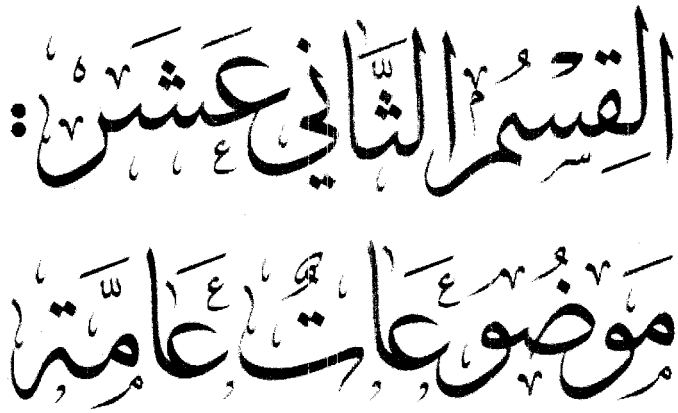 القِسْمُ الثَّانِي عَشَر:
مَوضُوعَاتٌ عَامَّة